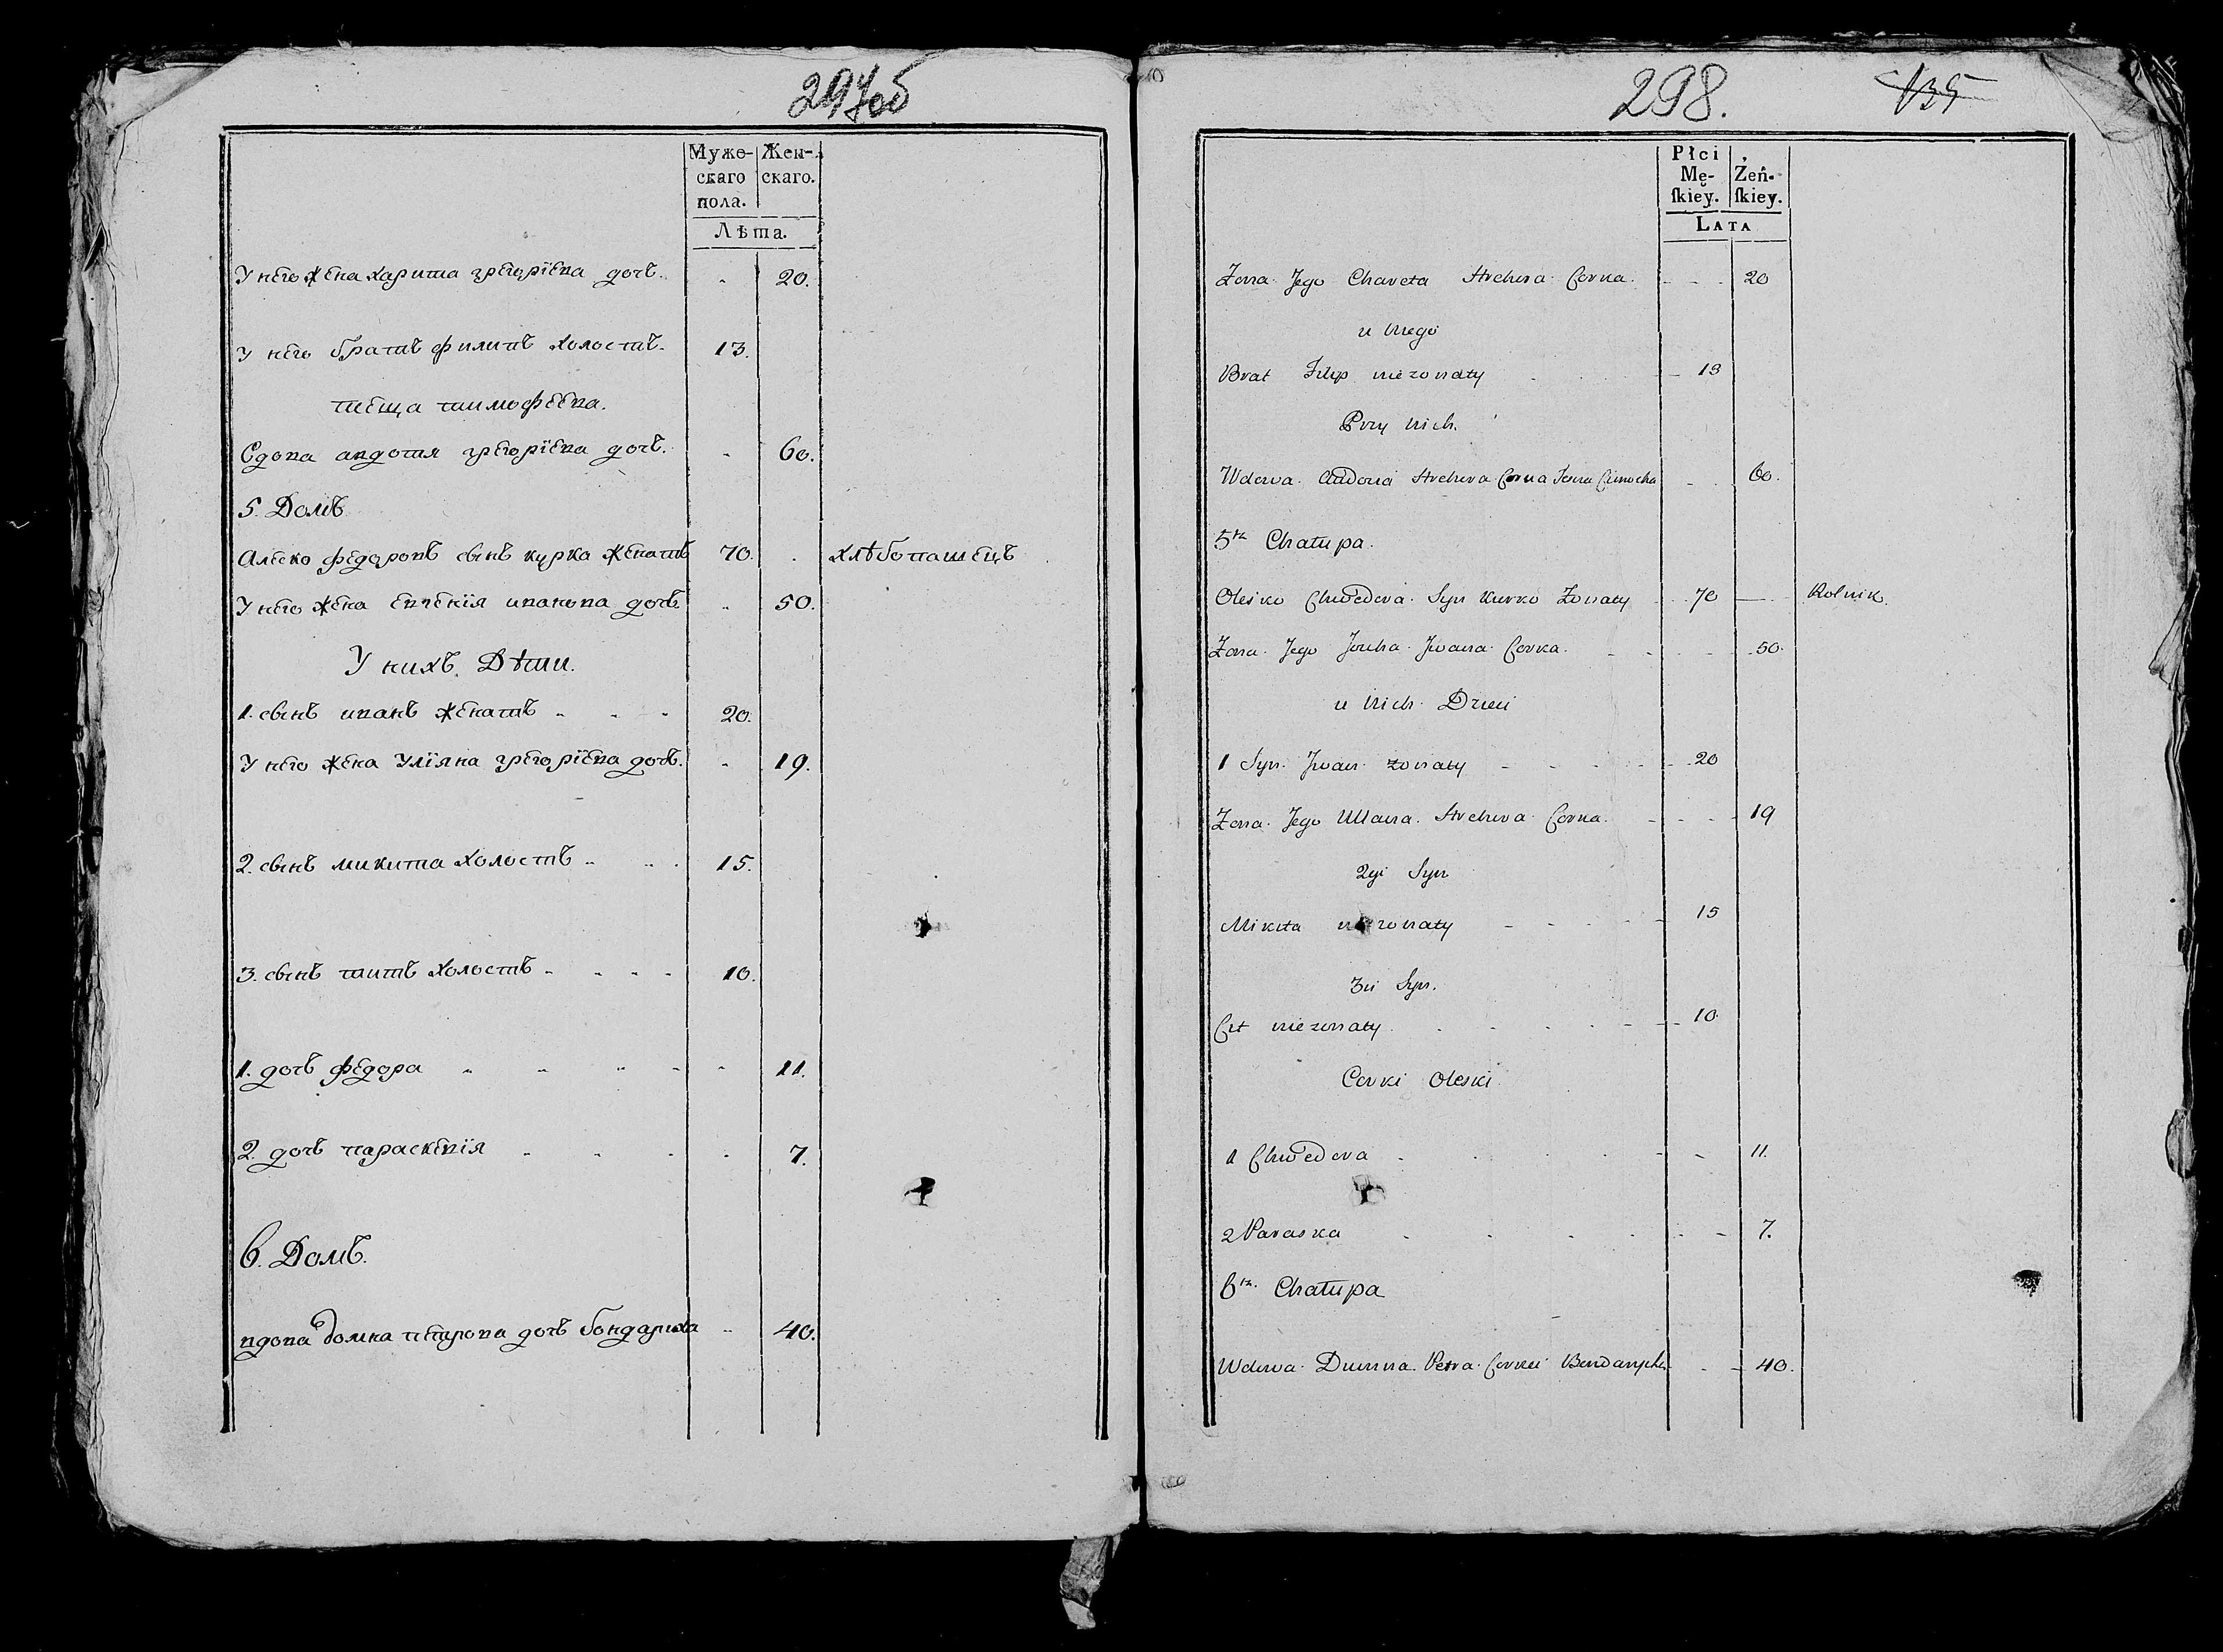 297об
Муже-
скаго
пола.
Жен-
скаго.
Лѣта.
У него жена харита григорїева дочь. - 20.
У него братъ филипъ холостъ. 13.
теща тимофеева.
Вдова авдотя григорїева дочь. - 60.
5. Домъ
Алеко федоровъ сынъ курка женатъ 70. . хлѣбопашецъ
У него жена евгенїя иванова дочь .. 50.
У нихъ Дѣти.
1. сынъ иванъ женатъ 20.
У него жена Улїяна григорїева дочь. - 19.
2. сынъ микита холостъ 15.
3. сынъ титъ холостъ 10.
1. дочь федора 11.
2. дочь параскевїя 7.
6. Домъ.
вдова домна петрова дочь бондариха .. 40.
298. 135
Płci
Mę-
skiey.
Żeń-
skiey.
LATA
Zona Jego Chareta Hrehora Corka. 20
u Niego
Brat Filip niezonaty 13
Przy nich.
Wdowa Audocia Hrehora Corka 60.
5ta Chałupa.
Olesko Chwedora Syn Kurko Zonaty 70 — Rolnik.
Zona Jego Jouha Jwana Corka. 50.
u Nich Dzieci
1 Syn Jwan zonaty 20
Zona Jego Ullana Hrehora Corka. 19
2gi Syn
Mikita niezonaty 15
3ci Syn.
Cit niezonaty 10
Corki Oleski
1 Chwedora 11.
2 Paraska 7.
6ta Chałupa
Wdowa Dumna Petra Corka Bondarycha 40.